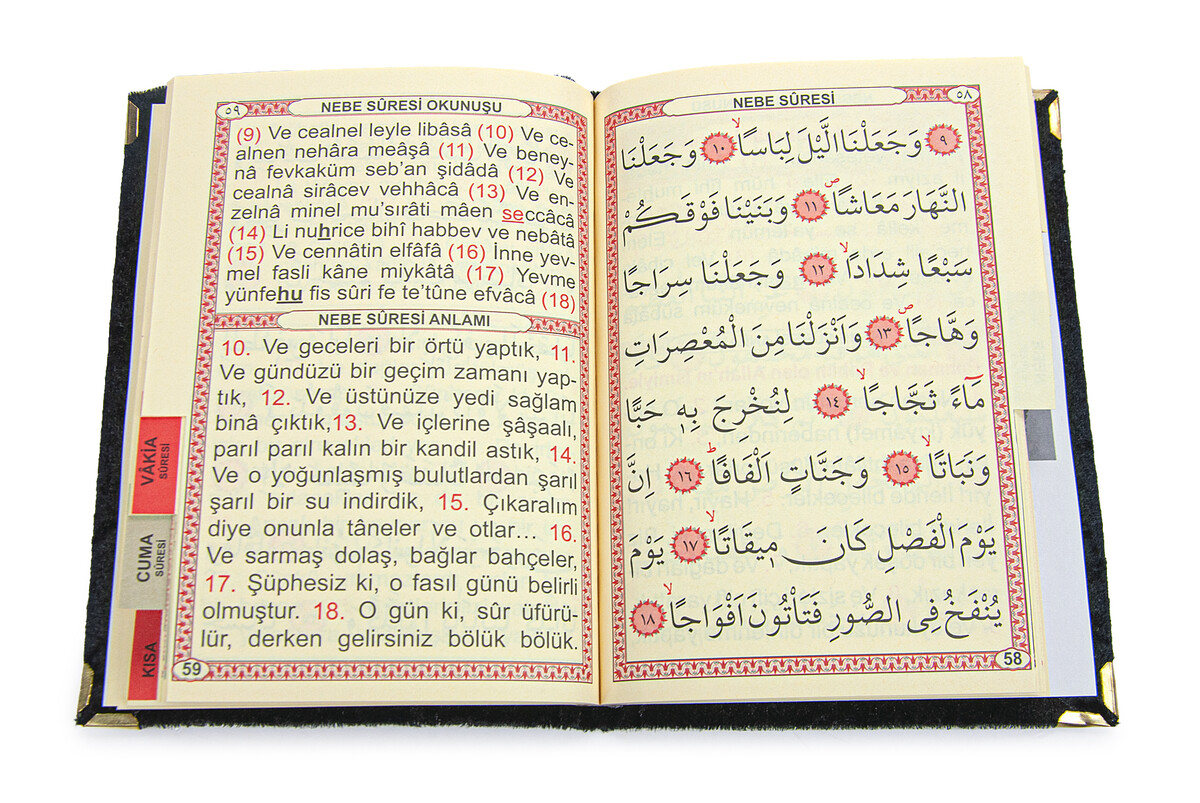 ٥٩
NEBE SÛRESİ OKUNUŞU
(9) Ve cealnel leyle libâsâ (10) Ve ce-
alnen nehâra meâşâ (11) Ve beney-
nâ fevkaküm seb'an şidâdâ (12) Ve
cealnâ sirâcev vehhâcâ (13) Ve en-
zelnâ minel mu'sırâti mâen seccâcâ
(14) Li nuhrice bihî habbev ve nebâtâ
(15) Ve cennâtin elfâfâ (16) İnne yev-
mel fasli kâne miykâtâ (17) Yevme
yünfehu fis sûri fe te'tûne efvâcâ (18)
NEBE SÛRESİ ANLAMI
10. Ve geceleri bir örtü yaptık, 11.
Ve gündüzü bir geçim zamanı yap-
tık, 12. Ve üstünüze yedi sağlam
binâ çıktık,13. Ve içlerine şâşaalı,
parıl parıl kalın bir kandil astık, 14.
Ve o yoğunlaşmış bulutlardan şarıl
şarıl bir su indirdik, 15. Çıkaralım
diye onunla tâneler ve otlar... 16.
Ve sarmaş dolaş, bağlar bahçeler,
17. Şüphesiz ki, o fasıl günü belirli
olmuştur. 18. O gün ki, sûr üfürü-
lür, derken gelirsiniz bölük bölük.
59
VÂKIA
SÛRESİ
CUMA
SÛRESİ
KISA
٥٨
NEBE SÛRESİ
٩ وَجَعَلْنَا الَّيْلَ لِبَاسًاۙ ١٠ وَجَعَلْنَا
النَّهَارَ مَعَاشًاۖ ١١ وَبَنَيْنَا فَوْقَكُمْ
سَبْعًا شِدَادًاۙ ١٢ وَجَعَلْنَا سِرَاجًا
وَهَّاجًاۖ ١٣ وَاَنْزَلْنَا مِنَ الْمُعْصِرَاتِ
مَٓاءً ثَجَّاجًاۙ ١٤ لِنُخْرِجَ بِهٖ حَبًّا
وَنَبَاتًاۙ ١٥ وَجَنَّاتٍ اَلْفَافًاۜ ١٦ اِنَّ
يَوْمَ الْفَصْلِ كَانَ مٖيقَاتًاۙ ١٧ يَوْمَ
يُنْفَخُ فِى الصُّورِ فَتَاْتُونَ اَفْوَاجًاۙ ١٨
58